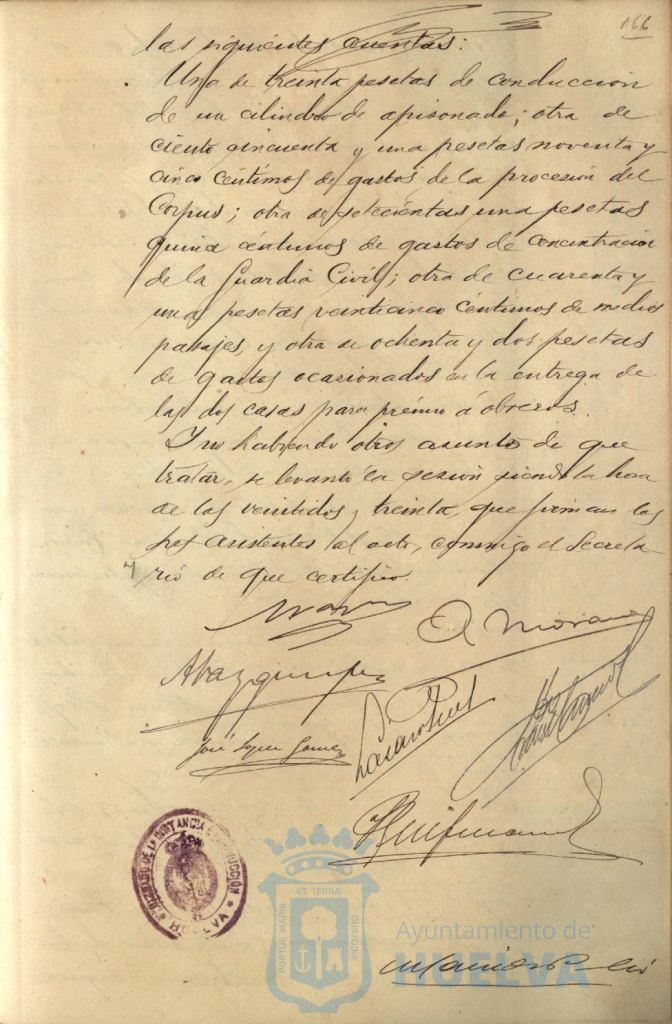 166
las siguientes cuentas:
Una de treinta pesetas de conducción
de un cilindro de apisonado; otra de
ciento cincuenta y una pesetas noventa y
cinco céntimos de gastos de la procesión del
Corpus; otra de setecientas una pesetas
quince céntimos de gastos de concentración
de la Guardia Civil; otra de cuarenta y
una pesetas veinticinco céntimos de medios
pasajes, y otra de ochenta y dos pesetas
de gastos ocasionados en la entrega de
las dos casas para premio á obreros.
Y no habiendo otros asuntos de que
tratar, se levantó la sesión siendo la hora
de las veintidos y treinta, que firman los
asistentes al acto, conmigo el Secreta-
rio de que certifico.
Moreno
José López Gómez
JUZGADO DE 1ª INSTANCIA E INSTRUCCIÓN
HUELVA
PORTUS MARIS ET TERRÆ CUSTODIA
Ayuntamiento de
HUELVA